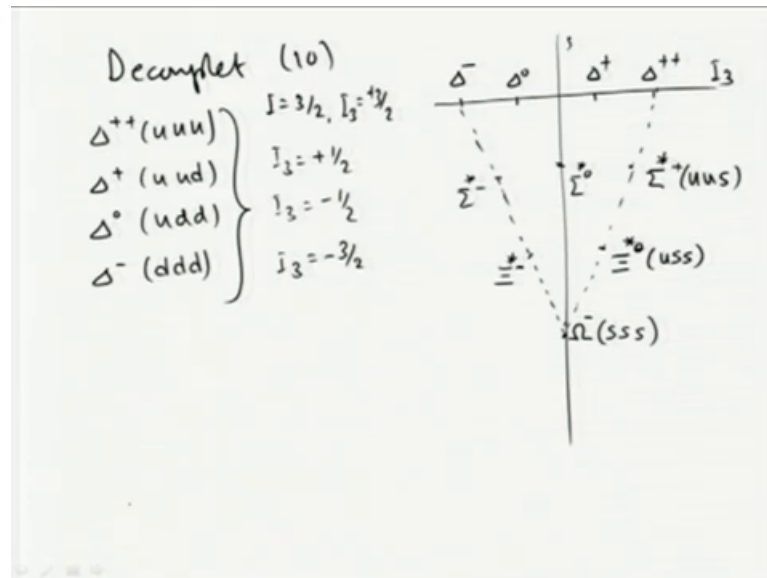 Decouplet (10)
Δ⁺⁺ (uuu) I = 3/2, I₃ = +3/2
Δ⁺ (uud) I₃ = +1/2
Δ⁰ (udd) I₃ = -1/2
Δ⁻ (ddd) I₃ = -3/2
s
Δ⁻ Δ⁰ Δ⁺ Δ⁺⁺ I₃
Σ*⁻ Σ*⁰ Σ*⁺ (uus)
Ξ*⁻ Ξ*⁰ (uss)
Ω⁻ (sss)